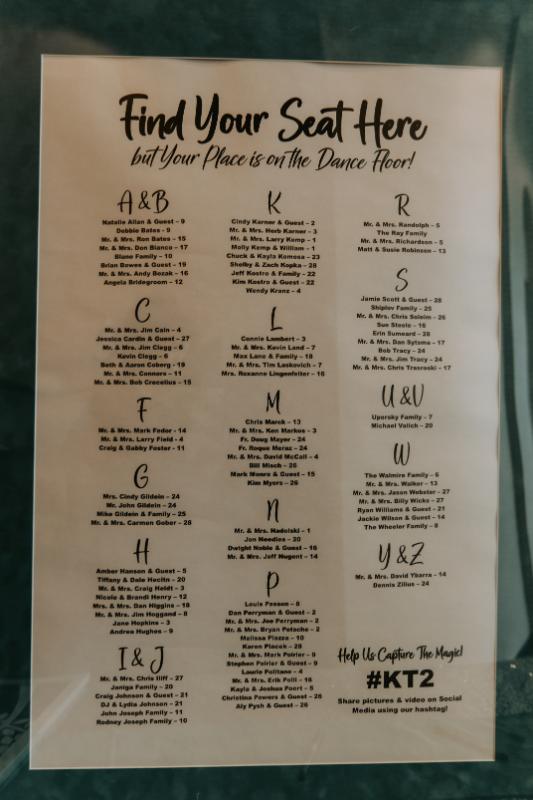 Find Your Seat Here
but Your Place is on the Dance Floor!
A&B
Natalie Allan & Guest - 9
Debbie Bates - 9
Mr. & Mrs. Ron Bates - 15
Mr. & Mrs. Don Bianco - 17
Blane Family - 10
Brian Bowes & Guest - 19
Mr. & Mrs. Andy Bozak - 16
Angela Bridegroom - 12
C
Mr. & Mrs. Jim Cain - 4
Jessica Cardin & Guest - 27
Mr. & Mrs. Jim Clegg - 6
Kevin Clegg - 6
Beth & Aaron Coberg - 19
Mr. & Mrs. Connors - 11
Mr. & Mrs. Bob Crocelius - 15
F
Mr. & Mrs. Mark Fedor - 14
Mr. & Mrs. Larry Field - 4
Craig & Gabby Foster - 11
G
Mrs. Cindy Gildein - 24
Mr. John Gildein - 24
Mike Gildein & Family - 25
Mr. & Mrs. Carmen Gober - 28
H
Amber Hanson & Guest - 5
Tiffany & Dale Hecltn - 20
Mr. & Mrs. Craig Heldt - 3
Nicole & Brandi Henry - 12
Mrs. & Mrs. Dan Higgins - 18
Mr. & Mrs. Jim Hoggand - 8
Jane Hopkins - 3
Andrea Hughes - 9
I & J
Mr. & Mrs. Chris Iliff - 27
Janiga Family - 20
Craig Johnson & Guest - 21
DJ & Lydia Johnson - 21
John Joseph Family - 11
Rodney Joseph Family - 10
K
Cindy Karner & Guest - 2
Mr. & Mrs. Herb Karner - 3
Mr. & Mrs. Larry Kemp - 1
Molly Kemp & William - 1
Chuck & Kayla Komosa - 23
Shelby & Zach Kopka - 28
Jeff Kostro & Family - 22
Kim Kostro & Guest - 22
Wendy Kranz - 4
L
Connie Lambert - 3
Mr. & Mrs. Kevin Land - 7
Max Lane & Family - 18
Mr. & Mrs. Tim Laskovich - 7
Mrs. Roxanne Lingenfelter - 16
M
Chris Marck - 13
Mr. & Mrs. Ken Markos - 3
Fr. Doug Mayer - 24
Fr. Roque Meraz - 24
Mr. & Mrs. David McCall - 4
Bill Misch - 26
Mark Monro & Guest - 15
Kim Myers - 26
N
Mr. & Mrs. Nadolski - 1
Jon Needles - 20
Dwight Noble & Guest - 16
Mr. & Mrs. Jeff Nugent - 14
P
Louis Passon - 8
Dan Perryman & Guest - 2
Mr. & Mrs. Joe Perryman - 2
Mr. & Mrs. Bryan Petsche - 2
Melissa Piazza - 10
Karen Placek - 28
Mr. & Mrs. Mark Poirier - 9
Stephen Poirier & Guest - 9
Laurie Politano - 4
Mr. & Mrs. Erik Polli - 16
Kayla & Joshua Poort - 5
Christina Powers & Guest - 26
Aly Pysh & Guest - 26
R
Mr. & Mrs. Randolph - 5
The Ray Family
Mr. & Mrs. Richardson - 5
Matt & Susie Robinson - 13
S
Jamie Scott & Guest - 28
Shipley Family - 25
Mr. & Mrs. Chris Soleim - 26
Sue Steele - 16
Erin Sumeard - 28
Mr. & Mrs. Dan Sytsma - 17
Bob Tracy - 24
Mr. & Mrs. Jim Tracy - 24
Mr. & Mrs. Chris Tresroski - 17
U & V
Upersky Family - 7
Michael Valich - 20
W
The Walmire Family - 6
Mr. & Mrs. Walker - 13
Mr. & Mrs. Jason Webster - 27
Mr. & Mrs. Billy Wicks - 27
Ryan Williams & Guest - 21
Jackie Wilson & Guest - 14
The Wheeler Family - 8
Y & Z
Mr. & Mrs. David Ybarra - 14
Dennis Zilius - 24
Help Us Capture The Magic!
#KT2
Share pictures & video on Social
Media using our hashtag!